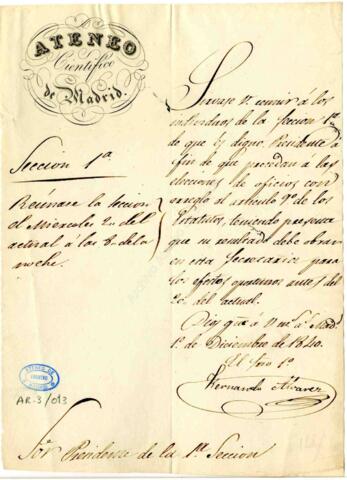 ATENEO
Científico
de Madrid.
Sección 1ª
Reúnase la Seccion
el Miercoles 2 del
actual á las 8 de la
noche.
Sirvase V. reunir á los
individuos de la Seccion 1ª
de que es digno Presidente á
fin de que procedan á las
elecciones de oficios con
arreglo al articulo 9º de los
Estatutos, teniendo presente
que su resultado debe obrar
en esta Secretaría para
los efectos oportunos antes del
20 del actual.
Dios gue á V. ms. as. Madd.
1º de Diciembre de 1840.
El Srio 1º
Fernando Alvarez
AR-3/013
Sor. Presidente de la 1ª Seccion